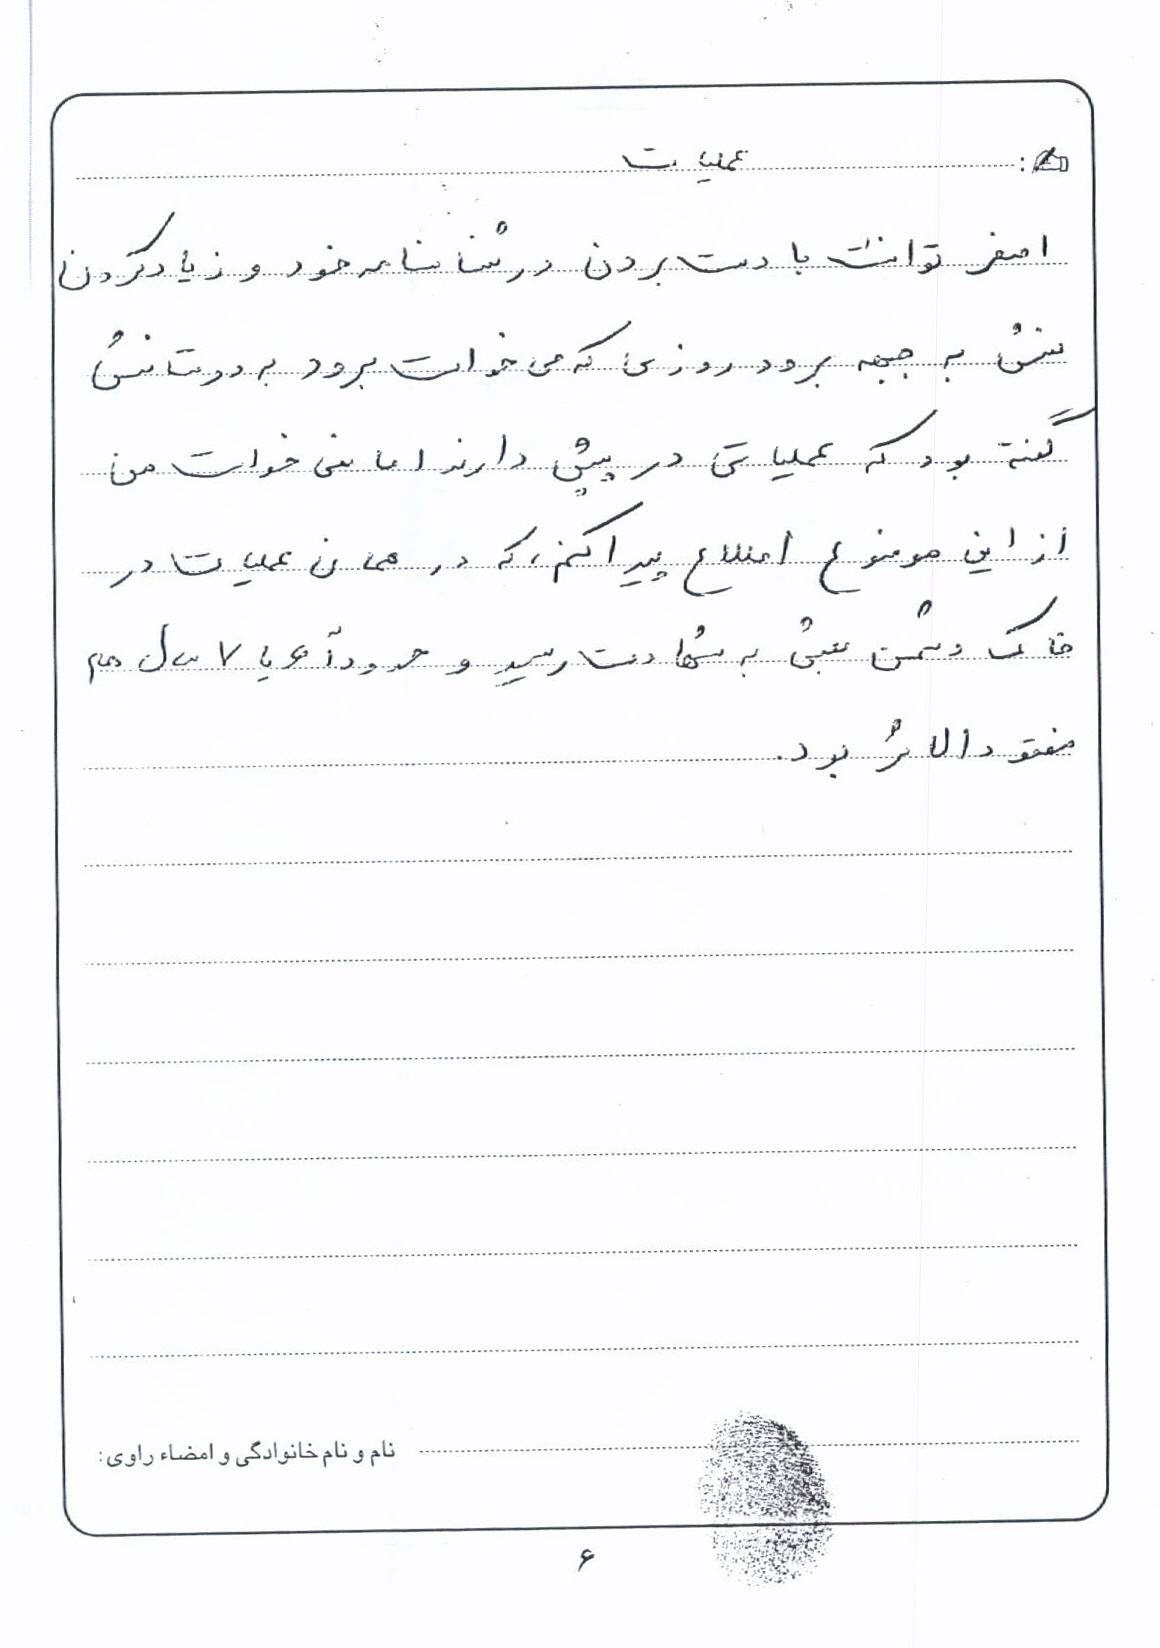 عملیات
اصغر توانست با دست بردن در شناسنامه خود و زیاد کردن
سنش به جبهه برود روزی که می خواست برود به دوستانش
گفته بود که عملیاتی در پیش دارند اما نمی خواست من
از این موضوع اطلاع پیدا کنم، که در همان عملیات در
خاک دشمن بعثی به شهادت رسید و حدوداً ۶ یا ۷ سال هم
مفقود الاثر بود.
نام و نام خانوادگی و امضاء راوی:
۶